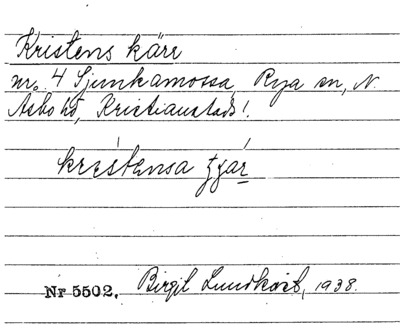 Kristens kärr
nr. 4 Sjunkamossa, Rya sn, N.
Åsbo hd, Kristianstads l.
krɛ́stensa ʒɟár
Nr 5502. Birgit Lundkvist, 1938.